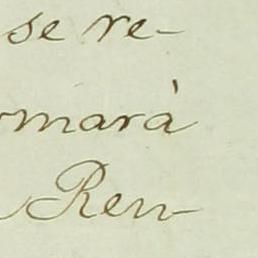 se re-
rmarà
Ren-